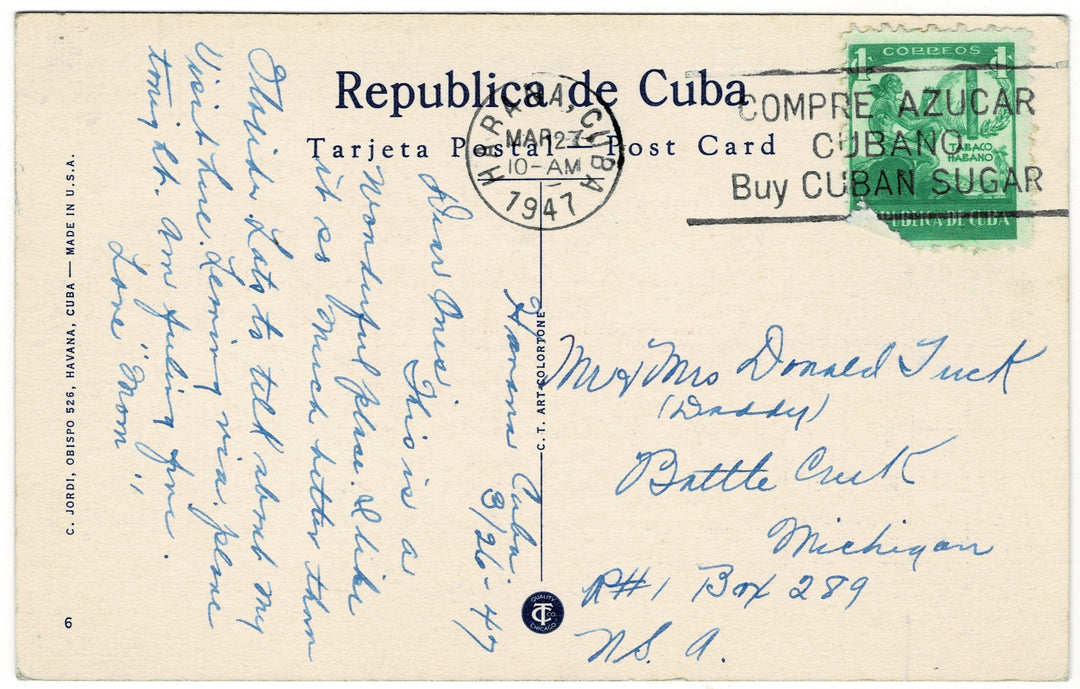 Republica de Cuba
Tarjeta Postal — Post Card
HABANA, CUBA
MAR 27
10-AM
1947
COMPRE AZUCAR
CUBANO
Buy CUBAN SUGAR
CORREOS
1 1
TABACO
HABANO
REPUBLICA DE CUBA
Havana Cuba
3/26-47
Dear Ones,
This is a
Wonderful place. I like
it so much better than
Florida. Lots to tell about my
Visit here. Leaving via. plane
tonight. Am feeling fine.
Love "Mom"
Mr & Mrs Donald Tuck
(Daddy)
Battle Creek
Michigan
R#1 Box 289
U.S.A.
C. T. ART-COLORTONE
QUALITY
CT CO.
CHICAGO
C. JORDI, OBISPO 526, HAVANA, CUBA — MADE IN U.S.A.
6